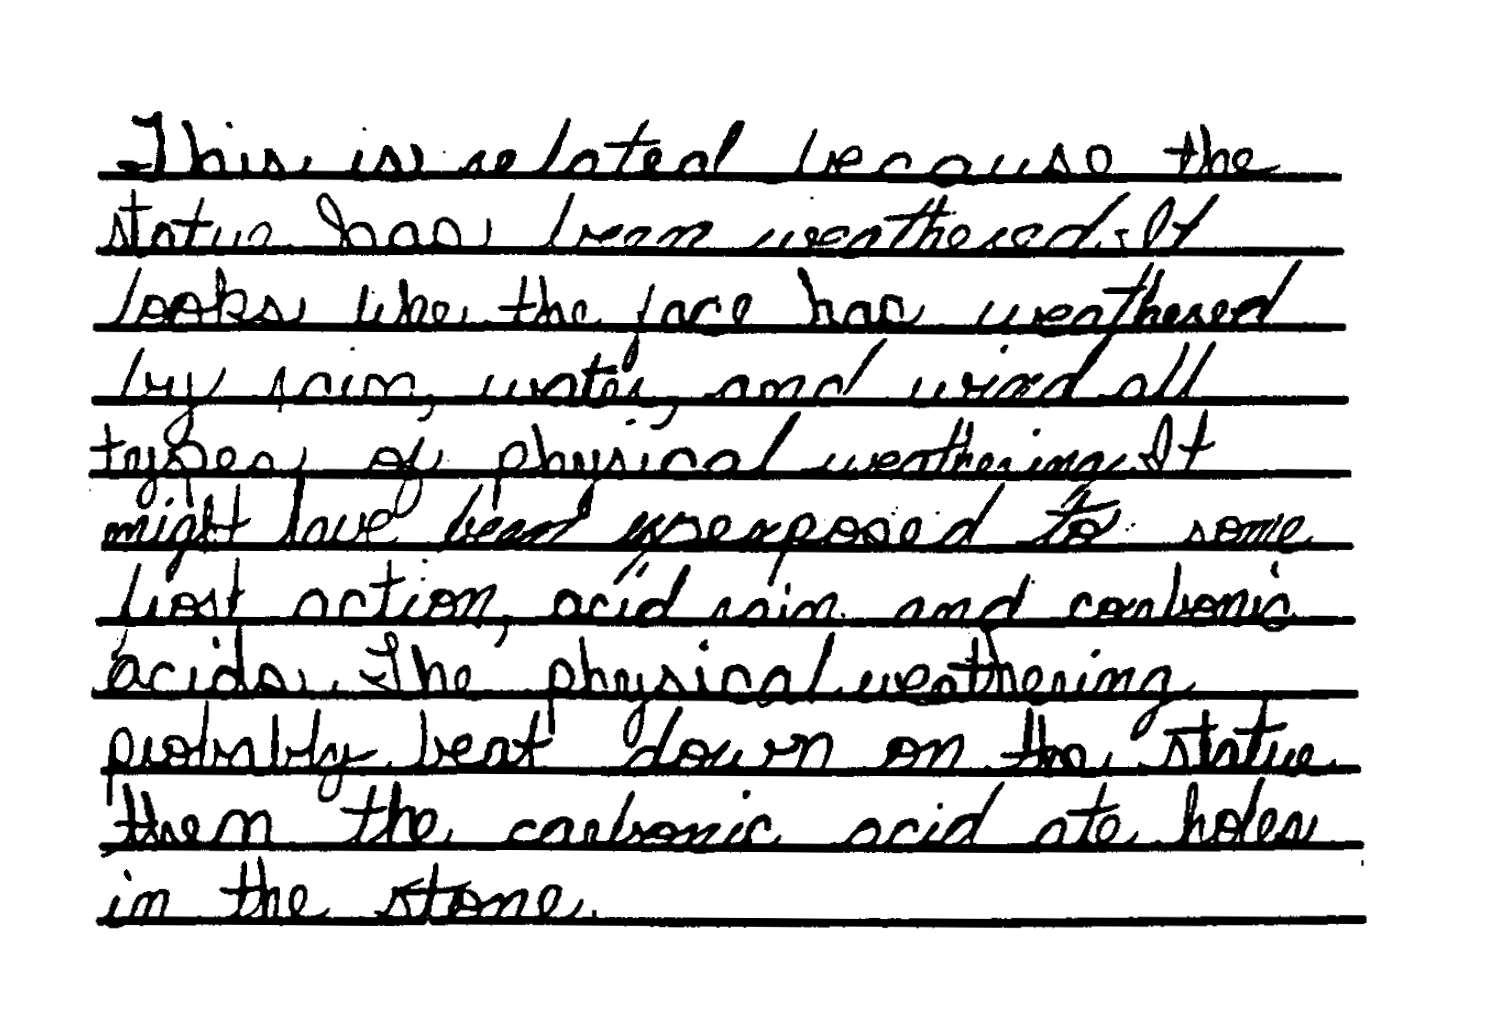 This is related because the
statue has been weathered. It
looks like the face has weathered
by rain, water, and wind all
types of physical weathering. It
might have been exposed to some
biost action, acid rain and carbonic
acids. The physical weathering
probably beat down on the statue
then the carbonic acid ate holes
in the stone.